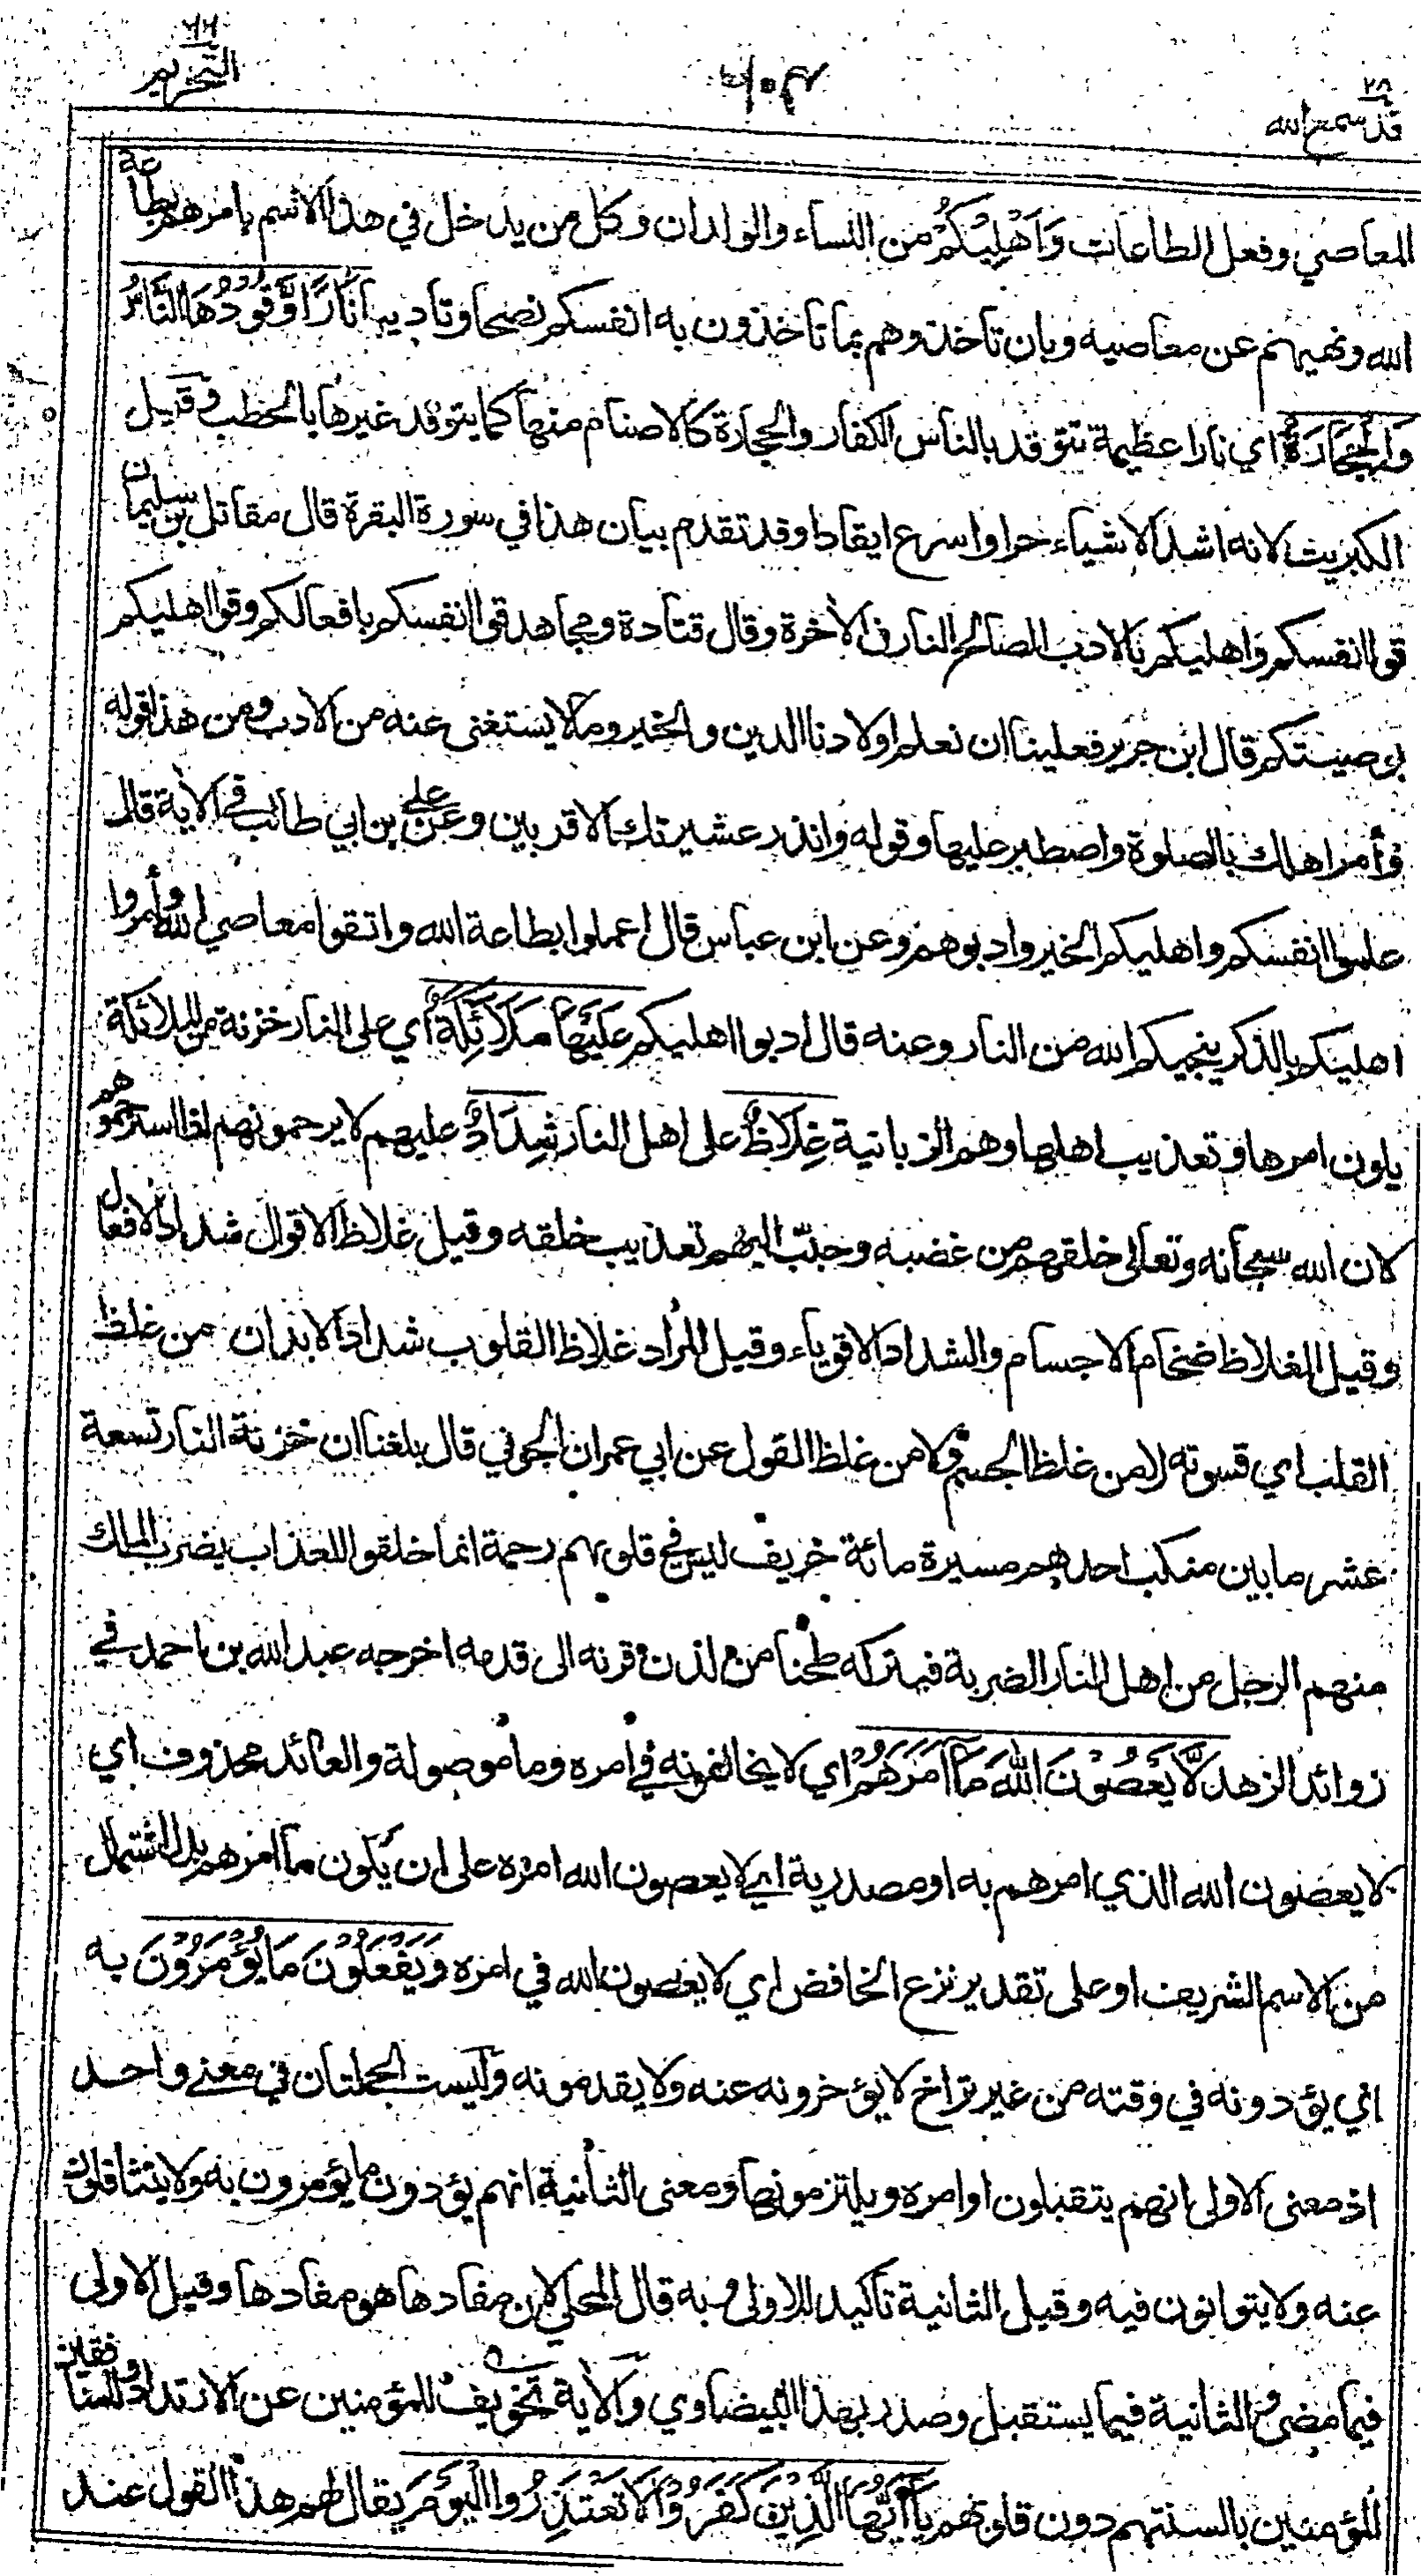 ٢٨
قد سمع الله
٦٦
التحريم
المعاصي وفعل الطاعات وَأَهْلِيْكُمْ من النساء والولدان وكل من يدخل في هذا الاسم بامرهم بطاعة
الله ونهيهم عن معاصيه وبان تاخذوهم بما تاخذون به انفسكم نصحا وتاديبا نَارًا وَّقُوْدُهَا النَّاسُ
وَالْحِجَارَةُ اي نارا عظيمة تتوقد بالناس الكفار والحجارة كالاصنام منها كما يتوقد غيرها بالحطب وقيل
الكبريت لانه اشد الاشياء حرا واسرع ايقادا وقد تقدم بيان هذا في سورة البقرة قال مقاتل بن سليمان
قوا انفسكم واهليكم بالادب الصالح النار في الاخرة وقال قتادة ومجاهد قوا انفسكم بافعالكم وقوا اهليكم
بوصيتكم قال ابن جرير فعلينا ان نعلم اولادنا الدين والخير وما لا يستغنى عنه من الادب ومن هذا قوله
وأمر اهلك بالصلوة واصطبر عليها وقوله وانذر عشيرتك الاقربين وعن علي بن ابي طالب في الاية قال
علموا انفسكم واهليكم الخير وادبوهم وعن ابن عباس قال اعملوا بطاعة الله واتقوا معاصي الله وأمروا
اهليكم بالذكر ينجيكم الله من النار وعنه قال ادبوا اهليكم عَلَيْهَا مَلَائِكَةٌ اي على النار خزنة من الملائكة
يلون امرها وتعذيب اهلها وهم الزبانية غِلَاظٌ على اهل النار شِدَادٌ عليهم لا يرحمونهم اذا استرحموهم
لان الله سبحانه وتعالى خلقهم من غضبه وحبّب اليهم تعذيب خلقه وقيل غلاظ الاقوال شداد الافعال
وقيل الغلاظ ضخام الاجسام والشداد الاقوياء وقيل المراد غلاظ القلوب شداد الابدان من غلظ
القلب اي قسوته لا من غلظ الجسم ولا من غلظ القول عن ابي عمران الجوني قال بلغنا ان خزنة النار تسعة
عشر ما بين منكب احدهم مسيرة مائة خريف ليس في قلوبهم رحمة انما خلقوا للعذاب يضرب الملك
منهم الرجل من اهل النار الضربة فيتركه طحنا من لدن قرنه الى قدمه اخرجه عبد الله بن احمد في
زوائد الزهد لَّا يَعْصُوْنَ اللّٰهَ مَآ اَمَرَهُمْ اي لا يخالفونه في امره وما موصولة والعائد محذوف اي
لا يعصون الله الذي امرهم به او مصدرية اي لا يعصون الله امره على ان يكون ما امرهم بدل اشتمال
من الاسم الشريف او على تقدير نزع الخافض اي لا يعصون الله في امره وَيَفْعَلُوْنَ مَا يُؤْمَرُوْنَ به
اي يؤدونه في وقته من غير تراخ لا يؤخرونه عنه ولا يقدمونه وليست الجملتان في معنى واحد
اذ معنى الاولى انهم يتقبلون اوامره ويلتزمونها ومعنى الثانية انهم يؤدون ما يؤمرون به ولا يتثاقلون
عنه ولا يتوانون فيه وقيل الثانية تاكيد للاولى وبه قال المحلي لان مفادها هو مفادها وقيل الاولى
فيما مضى والثانية فيما يستقبل وصدر بهذا البيضاوي والاية تخويف للمؤمنين عن الارتداد وللمنافقين
المؤمنين بالسنتهم دون قلوبهم يٰٓاَيُّهَا الَّذِيْنَ كَفَرُوْا لَا تَعْتَذِرُوا الْيَوْمَ يقال لهم هذا القول عند